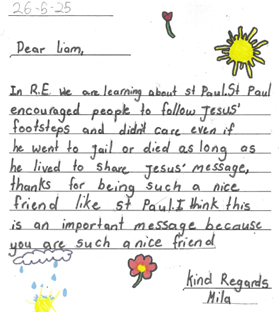 26-5-25
Dear Liam,
In R.E. We are learning about st Paul.St Paul
encouraged people to follow Jesus'
footsteps and didn't care even if
he went to jail or died as long as
he lived to share Jesus' message,
thanks for being such a nice
friend like St Paul.I think this
is an important message because
you are such a nice friend
Kind Regards
Mila